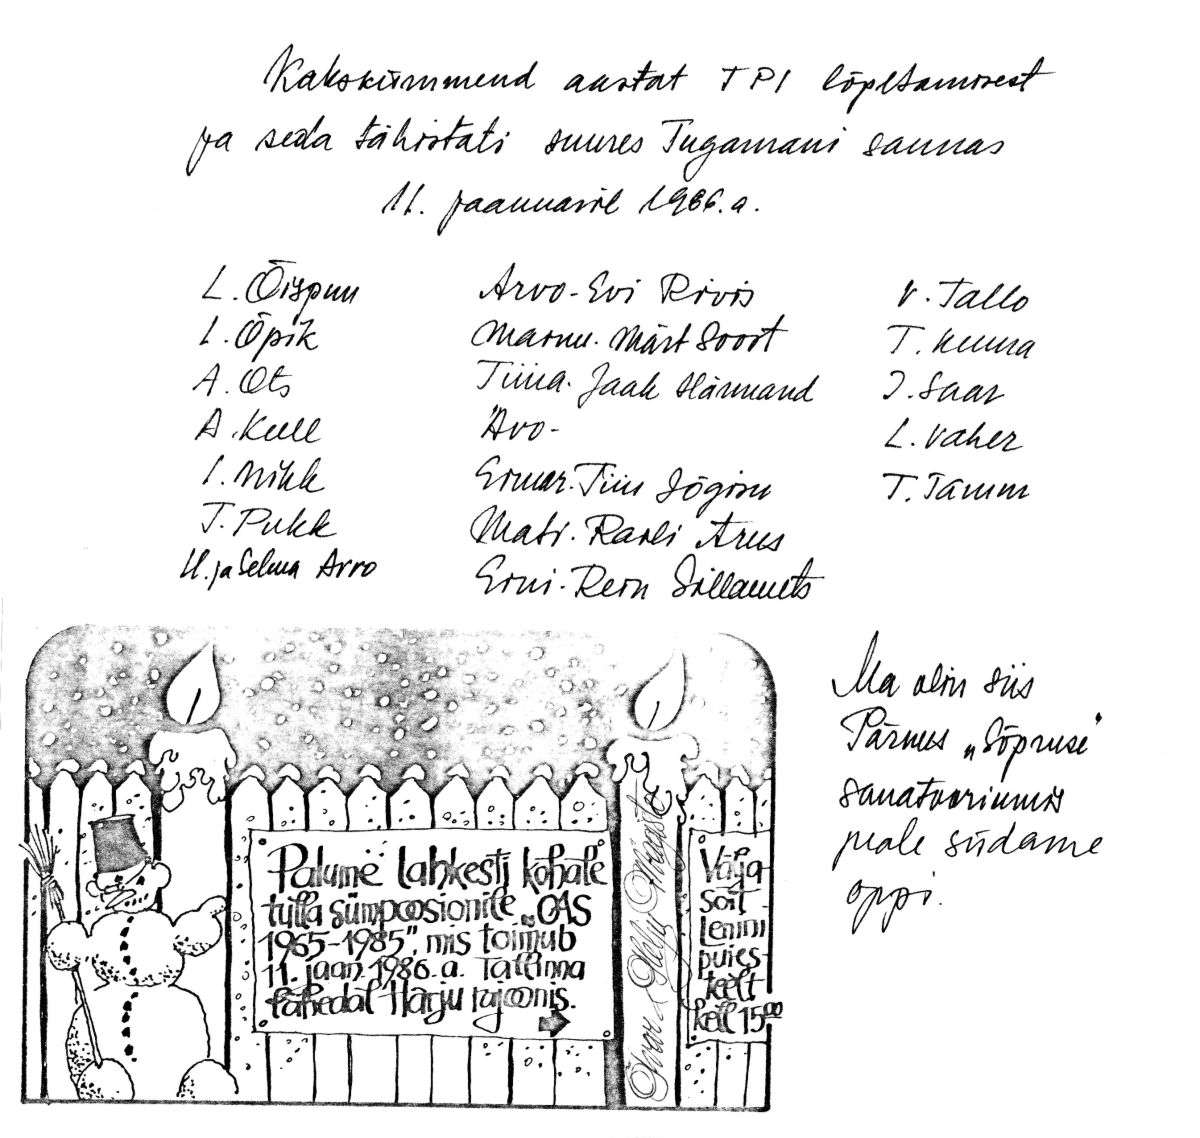 Kakskümmend aastat TPI lõpetamisest
ja seda tähistati suures Tugamani saunas
11. jaanuaril 1986.a.
L. Õispuu
L. Õpik
A. Ots
A. Kull
I. Mikk
T. Pukk
U. ja Selma Arro
Arvo-Evi Rivis
Mart Soort
Tiina. Jaak Hännand
Avo-
Tiiu Jõgisu
Arus
Rein Sillamets
V. Tallo
T. Kuura
J. Saar
L. Vaher
T. Tamm
Ma olin siis
Pärnus „Sõpruse"
sanatooriumis
peale südame
oppi.
Palume lahkesti kohale
tulla sümpoosionile „GAS
1965-1985", mis toimub
11. jaan. 1986.a. Tallinna
lähedal Harju rajoonis.
Välja-
sõit
Lenini
puies-
teelt
kell 15⁰⁰